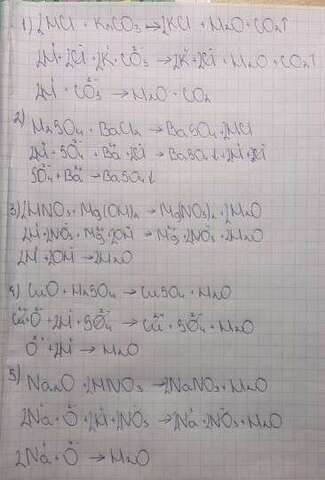 1) 2HCl + K₂CO₃ → 2KCl + H₂O + CO₂↑
2H⁺ + 2Cl⁻ + 2K⁺ + CO₃²⁻ → 2K⁺ + 2Cl⁻ + H₂O + CO₂↑
2H⁺ + CO₃²⁻ → H₂O + CO₂
2) H₂SO₄ + BaCl₂ → BaSO₄ + 2HCl
2H⁺ + SO₄²⁻ + Ba²⁺ + 2Cl⁻ → BaSO₄↓ + 2H⁺ + 2Cl⁻
SO₄²⁻ + Ba²⁺ → BaSO₄↓
3) 2HNO₃ + Mg(OH)₂ → Mg(NO₃)₂ + 2H₂O
2H⁺ + 2NO₃⁻ + Mg²⁺ + 2OH⁻ → Mg²⁺ + 2NO₃⁻ + 2H₂O
2H⁺ + 2OH⁻ → 2H₂O
4) CuO + H₂SO₄ → CuSO₄ + H₂O
Cu²⁺ + O²⁻ + 2H⁺ + SO₄²⁻ → Cu²⁺ + SO₄²⁻ + H₂O
O²⁻ + 2H⁺ → H₂O
5) Na₂O + 2HNO₃ → 2NaNO₃ + H₂O
2Na⁺ + O²⁻ + 2H⁺ + 2NO₃⁻ → 2Na⁺ + 2NO₃⁻ + H₂O
2Na⁺ + O²⁻ → H₂O